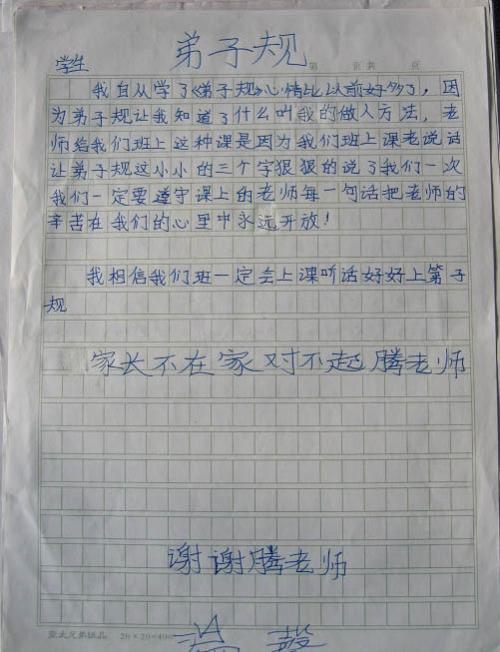 弟子规
学生
第 页共 页
我自从学了《弟子规》心情比以前好多了，因
为弟子规让我知道了什么叫我的做人方法，老
师给我们班上这种课是因为我们班上课老说话
让弟子规这小小的三个字狠狠的说了我们一次
我们一定要遵守课上的老师每一句话把老师的
辛苦在我们的心里中永远开放！
我相信我们班一定会上课听话好好上第子
规
家长不在家对不起腾老师
谢谢腾老师
20×20=400